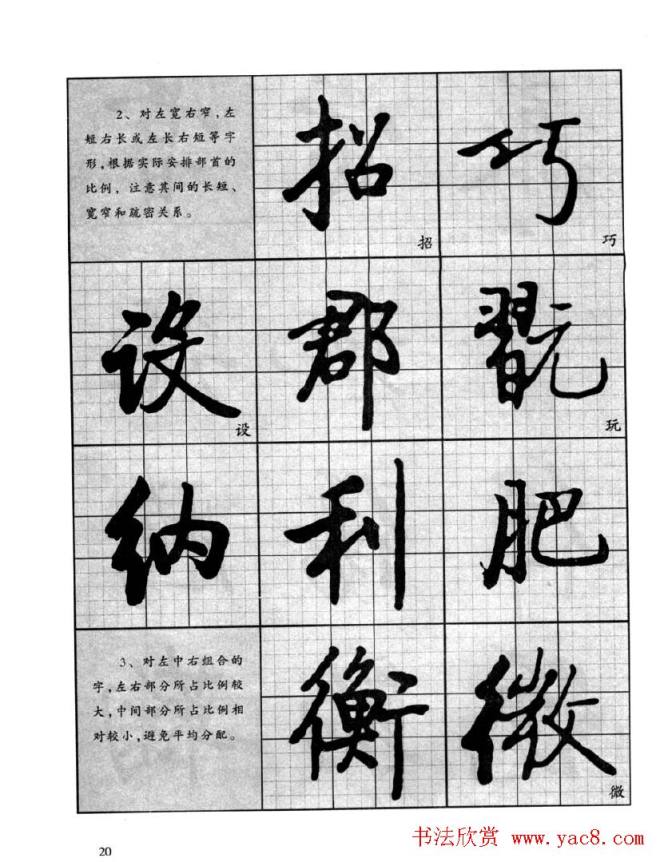 2、对左宽右窄,左
短右长或左长右短等字
形,根据实际安排部首的
比例，注意其间的长短、
宽窄和疏密关系。
招 巧
招 巧
设 郡 翫
设 玩
纳 利 肥
3、对左中右组合的
字,左右部分所占比例较
大,中间部分所占比例相
对较小,避免平均分配。
衡 微
微
20
书法欣赏 www.yac8.com